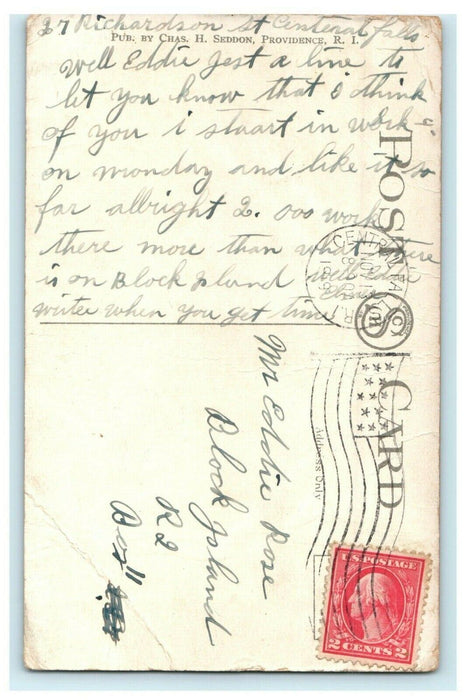 27 Richardson St Centeral falls
PUB. BY CHAS. H. SEDDON, PROVIDENCE, R. I.
Well Eddie Jest a line to
let you know that I think
of you i staart in work
on monday and like it so
far albright 2.000 work
there more than what there
is on Block Island well Eddie
writer when you get time
POST CARD
CENTRAL FALLS
R.I.
Address Only
Mr Eddie Rose
Block Island
R2
Box 11
U.S. POSTAGE
2 CENTS 2